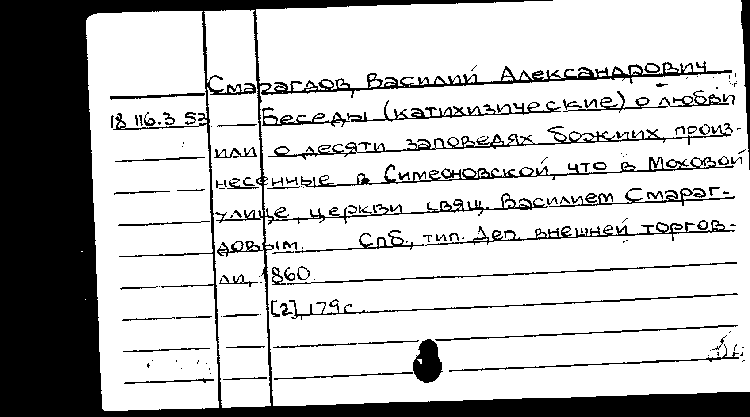 Смарагдов, Василий Александрович
18 116.3 53 Беседы (катихизические) о любви
или о десяти заповедях божиих, произ-
несенные в Симеоновской, что в Моховой
улице, церкви свящ. Василием Смараг-
довым. Спб., тип. Деп. внешней торгов-
ли, 1860
[2], 179 с.